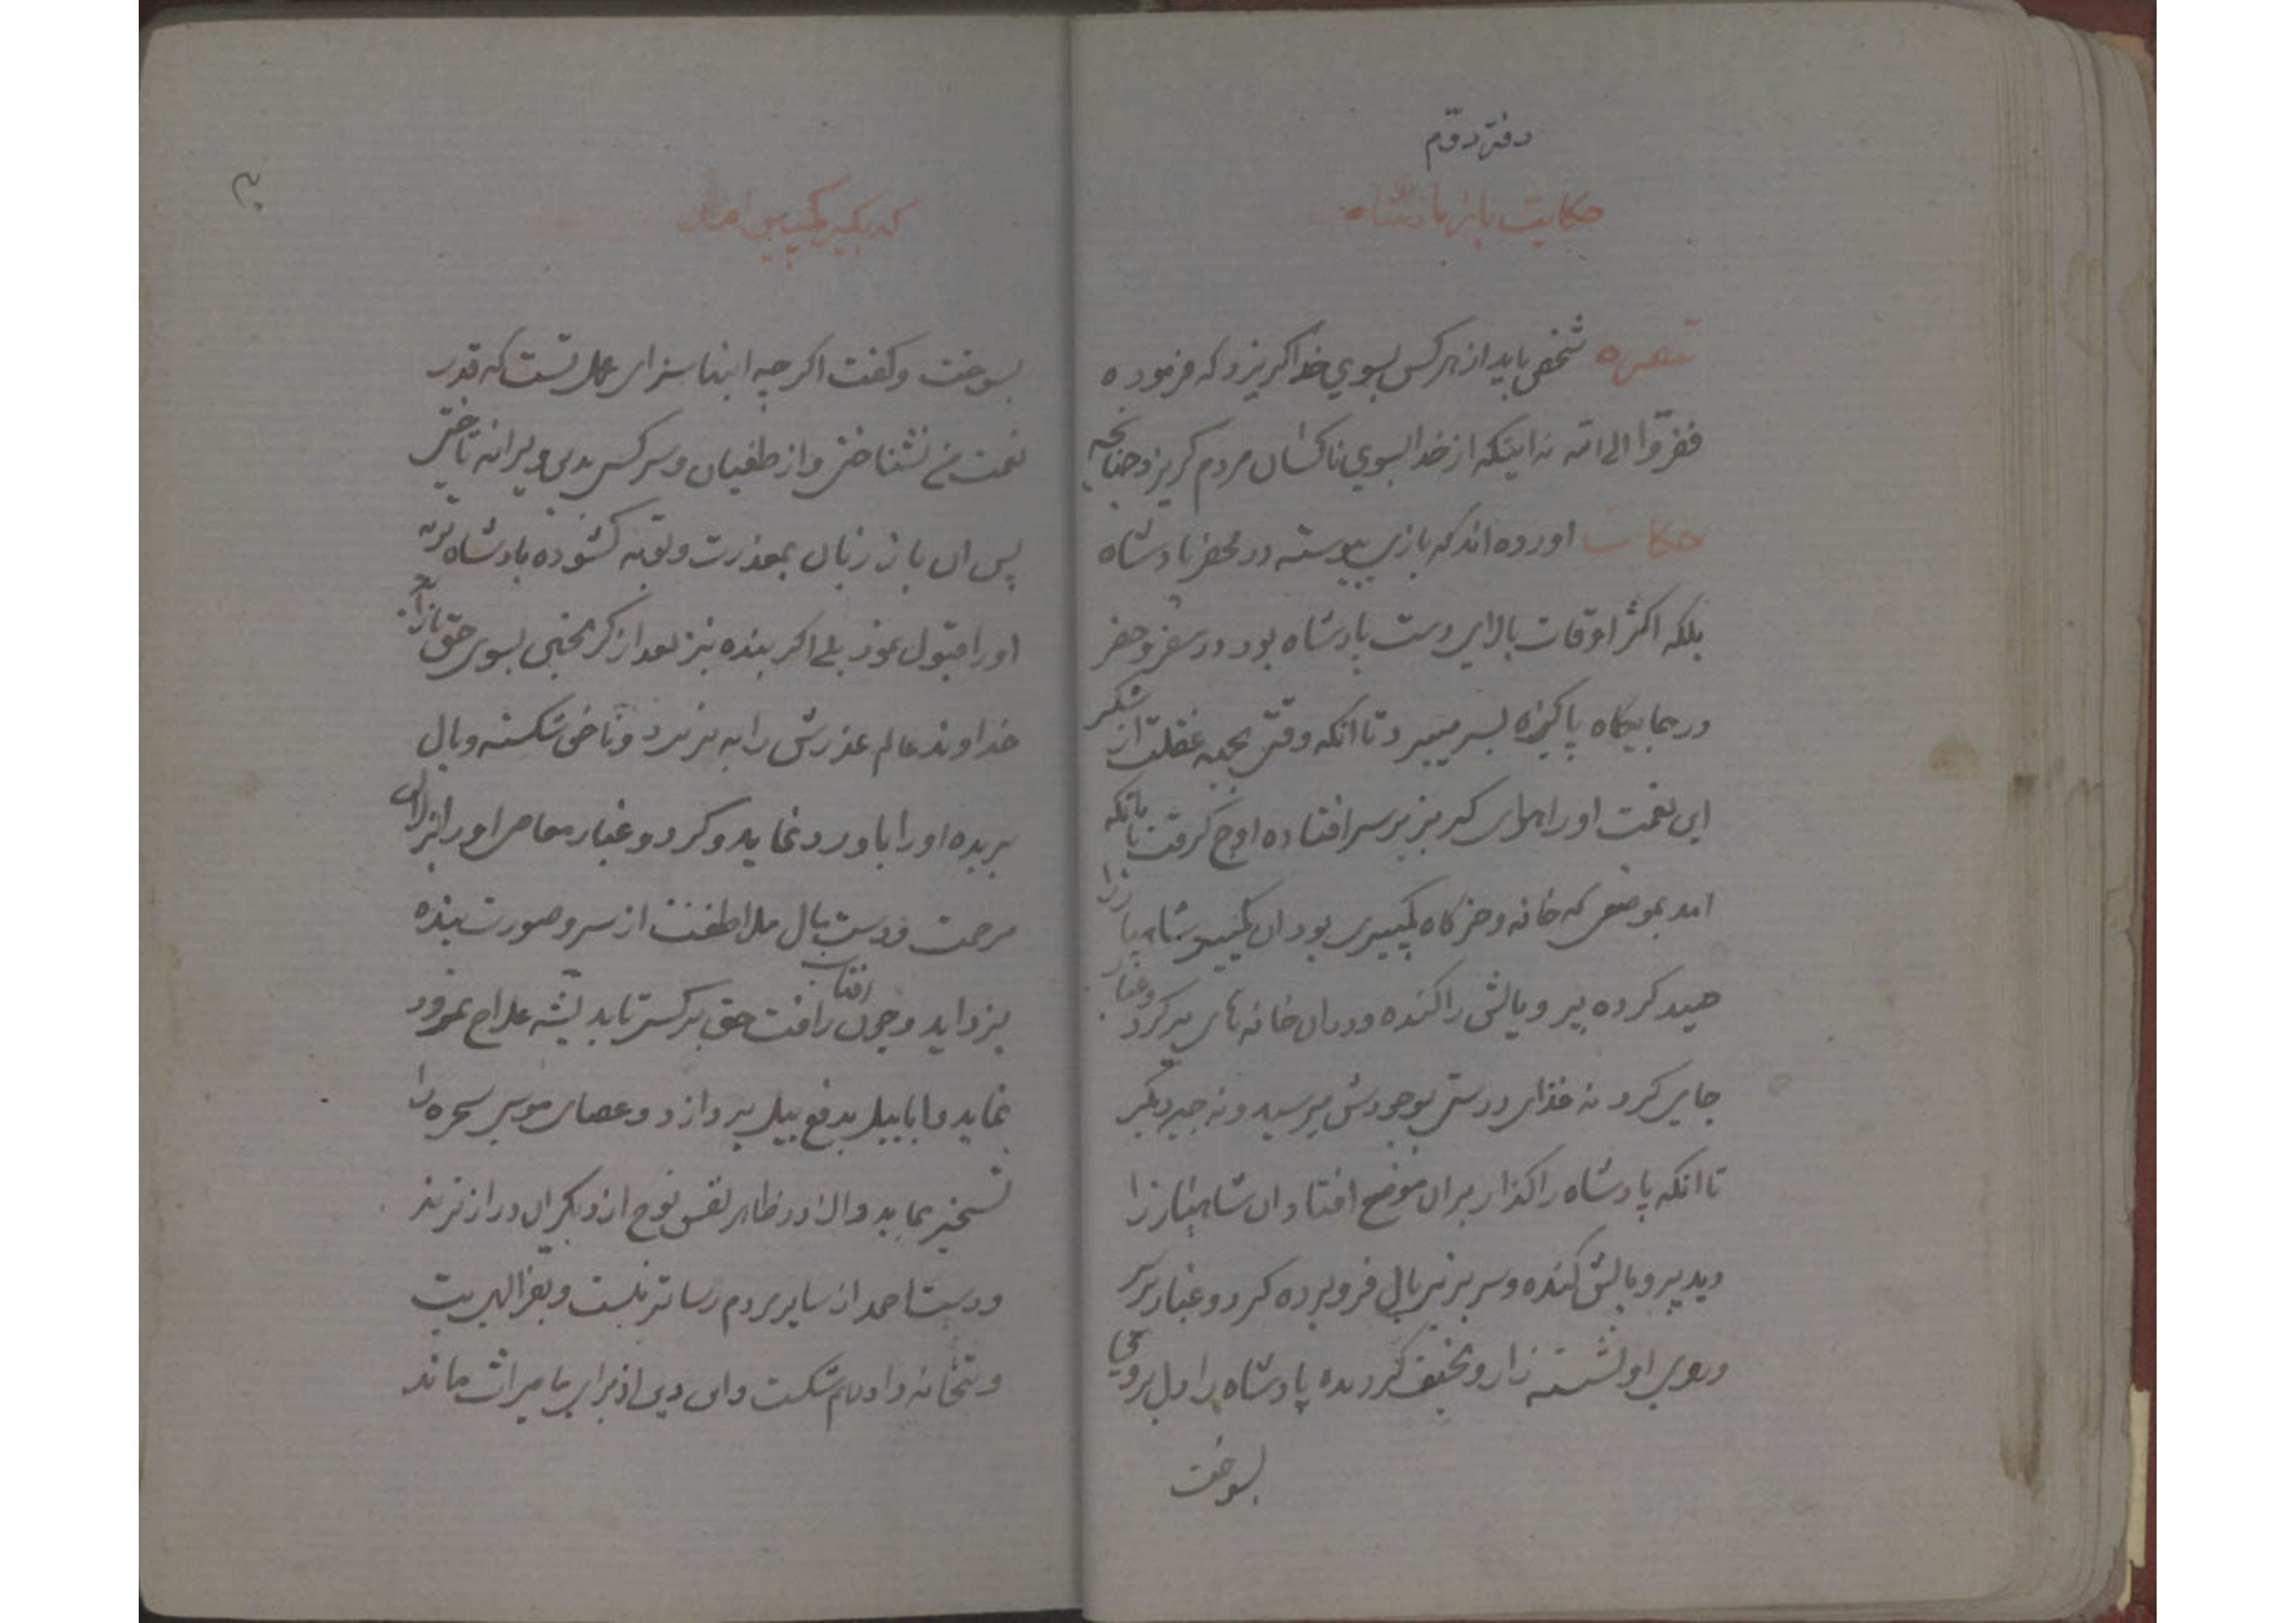 دفتر دوّم
حکایت باز پادشاه
تبصره شخص باید از هر کس بسوی خدا گریزد که فرموده
ففرّوا الی الله نه اینکه از خدا بسوی ناکسان مردم گریزد چنانچه
حکایت اورده اند که بازی پیوسته در محضر پادشاه
بلکه اکثر اوقات بالای دست پادشاه بود در سفر و حضر
در جایگاه پاکیزه بسر میبرد تا انکه وقتی بجهه غفلت از شکر
این نعمت او را هوای گریز بر سر افتاده اوج گرفت تا انکه
امد بموضعی که خانه و خرگاه کمپیری بود ان کمپیر شاهباز را
صید کرده پر و بالش را کنده و در ان خانه های پر گرد و غبار
جای کرد نه غذای درستی بوجودش میرسید و نه چیز دیگر
تا انکه پادشاه را گذار بر ان موضع افتاد ان شاهباز را
دید پر و بالش کنده و سر بزیر بال فرو برده گرد و غبار بر سر
و روی او نشسته زار و نحیف گردیده پادشاه را دل بر وی
بسوخت
۳۰
که بگیر کمپیر
بسوخت و گفت اگر چه اینها سزای عمل تست که قدر
نعمت من نشناختی و از طغیان و سرکشی بدین ویرانه تاختی
پس ان باز زبان بمعذرت و توبه گشوده پادشاه توبه
او را قبول نمود بلی اگر بنده نیز بعد از گریختن بسوی حق باز اید
خداوند عالم عذرش را بپذیرد و ناخن شکسته و بال
بریده او را باو رد نماید و گرد و غبار معاصی او را بزلال
مرحمت و دست بال ملاطفت از سر و صورت بنده
بزداید و چون افتاب رافت حق بر کسی تابد پشه علاج نمرود
نماید و ابابیل بدفع پیل پردازد و عصای موسی سحره را
تسخیر نماید والا در ظاهر نفس نوح از دیگران درازتر نبد
و دست احمد از سایر مردم رساتر نیست و بعز الهی بت
و بتخانه را درهم شکست و این دین از برای ما میراث ماند